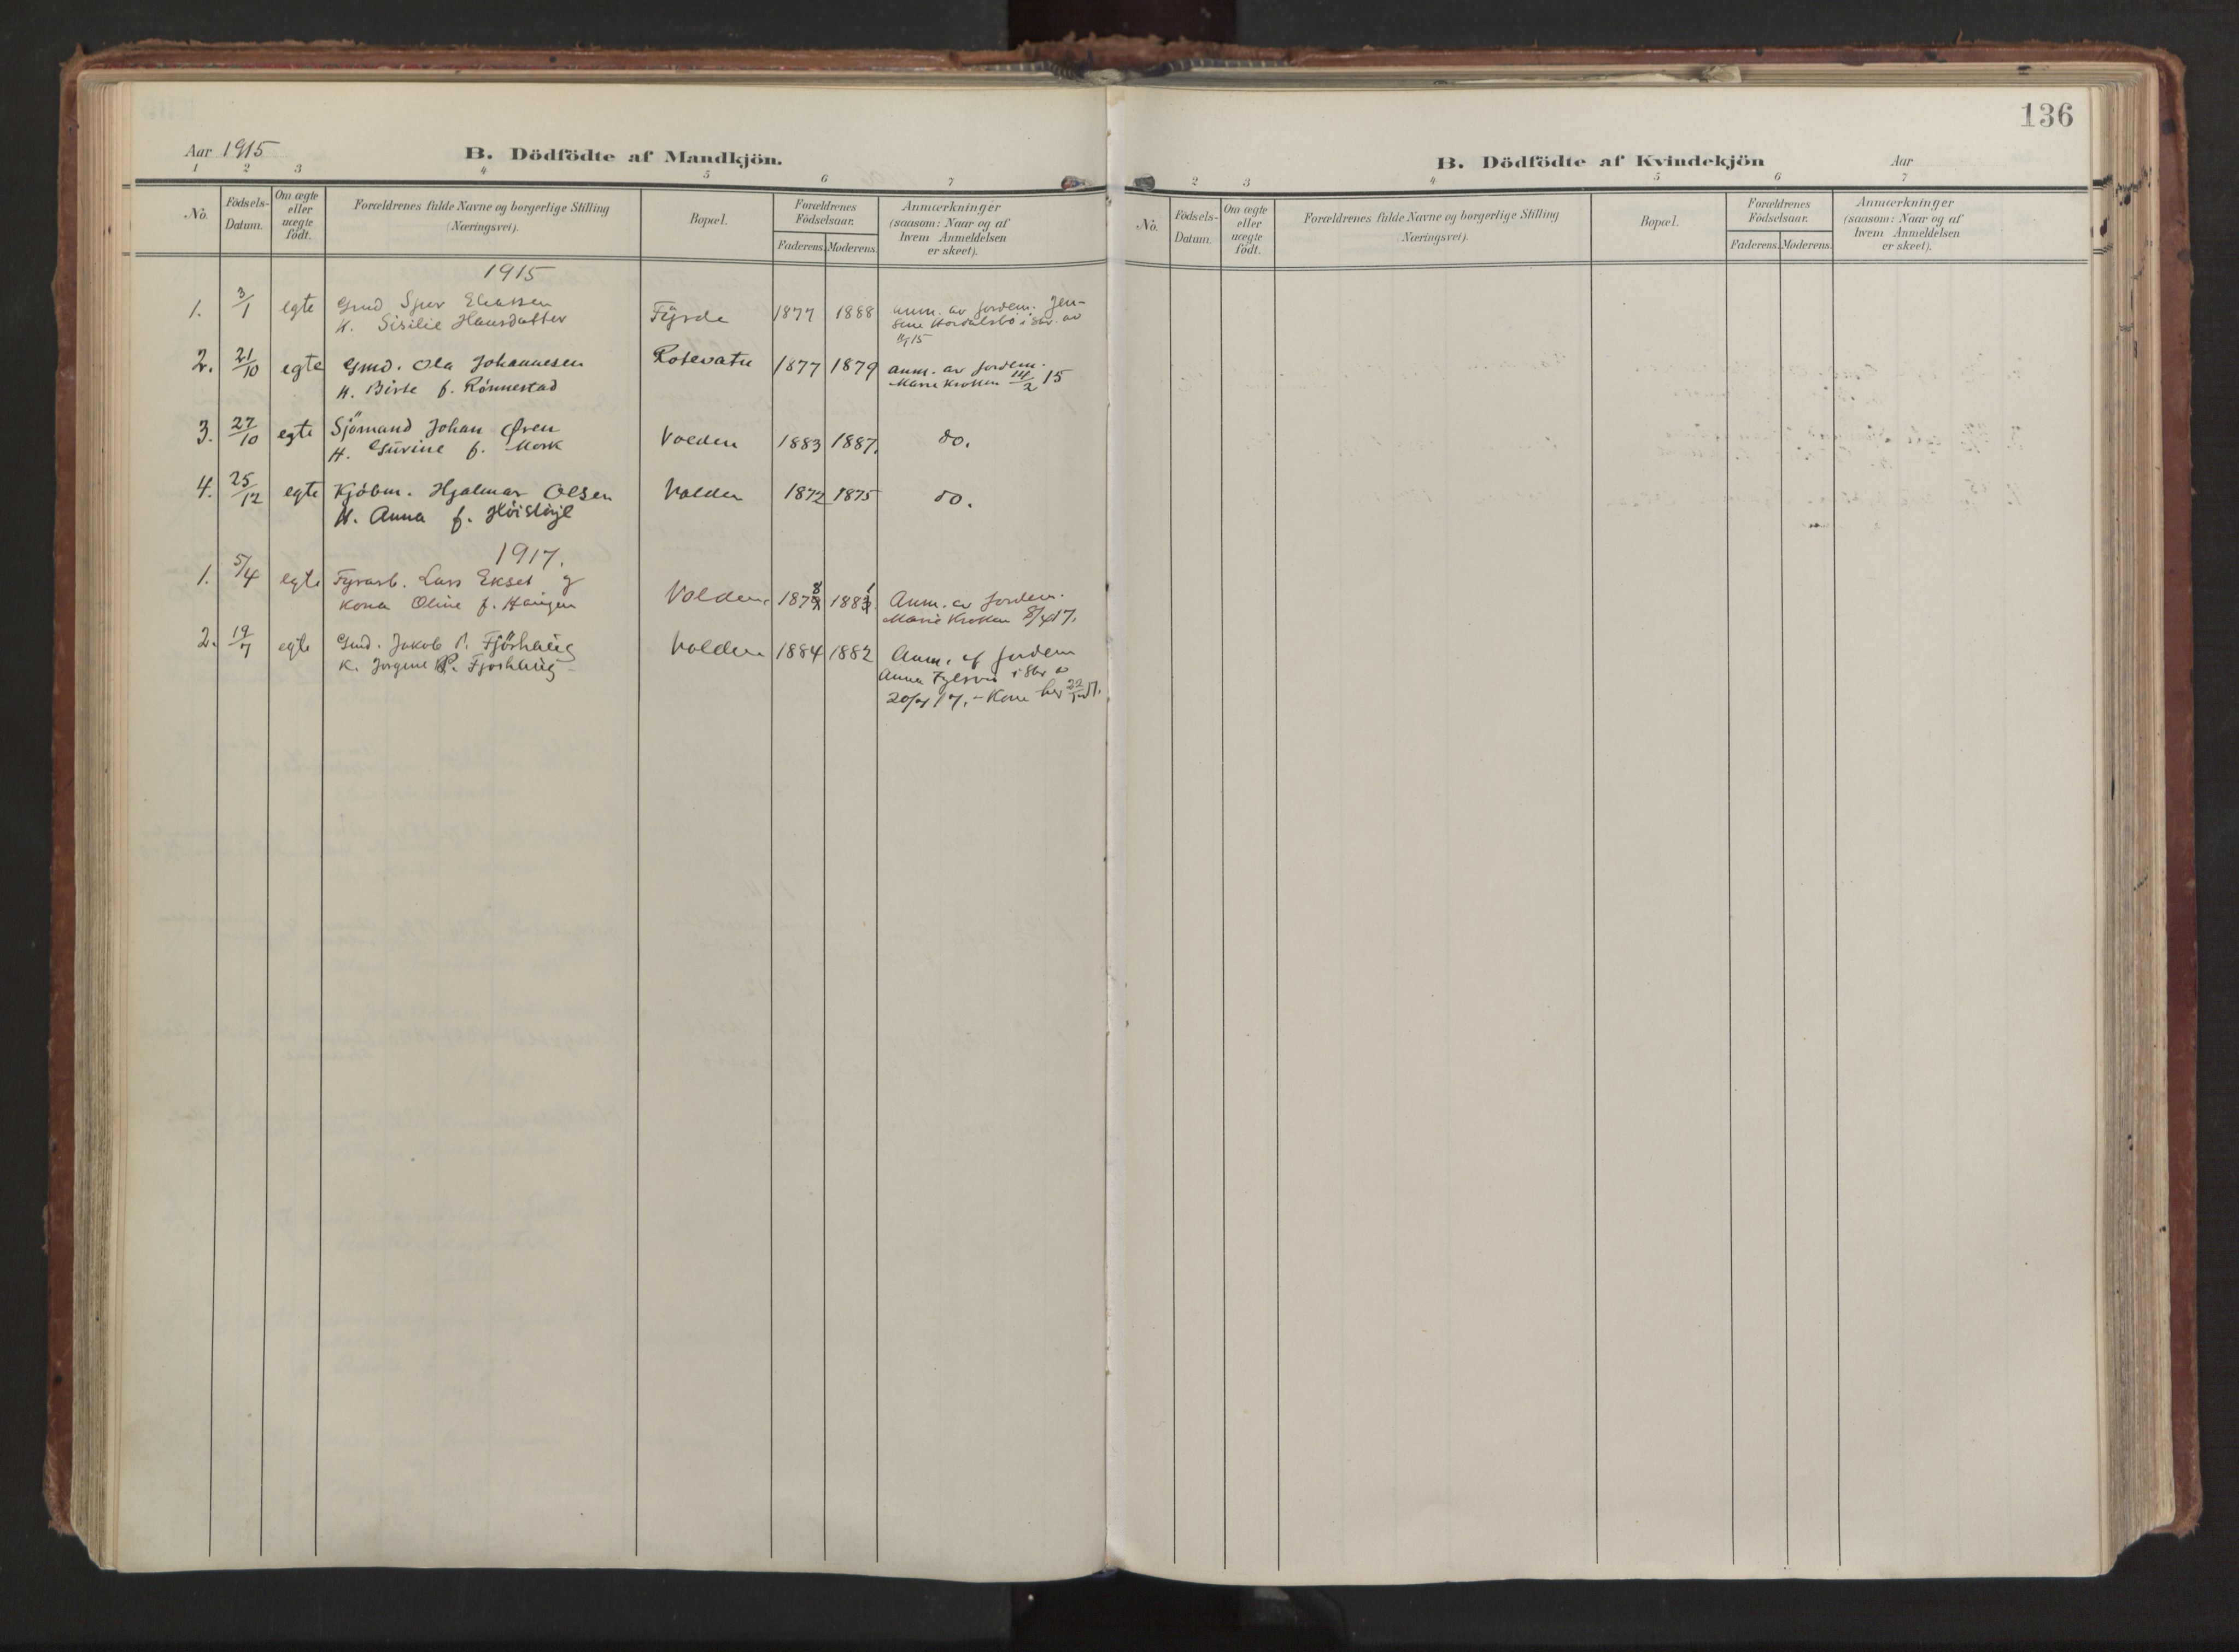 136
Aar 1915
B. Dödfödte af Mandkjön.
1 2 3 4 5 6 7
No.
Födsels-
Datum.
Om ægte
eller
uægte
födt.
Forældrenes fulde Navne og borgerlige Stilling
(Næringsvei).
Bopæl.
Forældrenes
Födselsaar.
Faderens. Moderens.
Anmærkninger
(saasom: Naar og af
hvem Anmeldelsen
er skeet).
1915
1. 3/1 egte Gmd Sjur Eliassen Fyrde 1877 1888 anm. av jordem. Jen-
K. Sisilie Hansdatter
2. 21/10 egte Gmd. Ola Johannesen Rotevatn 1877 1879 anm. av jordem.
H. Birte f. Rönnestad Marie Krokken 14/2 15
3. 27/10 egte Sjömand Johan Øren Volden 1883 1887. do.
H. Gurine f. Mork
4. 25/12 egte Kjöbm. Hjalmar Olsen Volden 1872 1875 do.
H. Anna f.
1917.
1. 5/4 egte Fyrarb. Lars Ekset g Volden 1878 1881 Anm. av jordem.
Kona Oline f. Haugen Marie Krokken 8/4 17.
2. 19/7 egte Gmd. Jakob P. Fjörhaug Volden 1884 1882 Anm. af jordem
K. Jorgine P. Fjorhaug Anna
20/7 17. - Kone
B. Dödfödte af Kvindekjön
Aar
2 3 4 5 6 7
No.
Födsels-
Datum.
Om ægte
eller
uægte
födt.
Forældrenes fulde Navne og borgerlige Stilling
(Næringsvei).
Bopæl.
Forældrenes
Födselsaar.
Faderens. Moderens.
Anmærkninger
(saasom: Naar og af
hvem Anmeldelsen
er skeet).